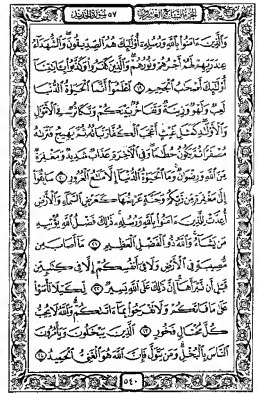 الجزء السابع والعشرون ٥٧ سورة الحديد
وَالَّذِينَ ءَامَنُوا بِاللَّهِ وَرُسُلِهِ أُولَٰئِكَ هُمُ الصِّدِّيقُونَ وَالشُّهَدَاءُ
عِندَ رَبِّهِمْ لَهُمْ أَجْرُهُمْ وَنُورُهُمْ وَالَّذِينَ كَفَرُوا وَكَذَّبُوا بِـَٔايَٰتِنَا
أُولَٰئِكَ أَصْحَٰبُ الْجَحِيمِ ١٩ اعْلَمُوا أَنَّمَا الْحَيَوٰةُ الدُّنْيَا
لَعِبٌ وَلَهْوٌ وَزِينَةٌ وَتَفَاخُرٌ بَيْنَكُمْ وَتَكَاثُرٌ فِي الْأَمْوَٰلِ
وَالْأَوْلَٰدِ كَمَثَلِ غَيْثٍ أَعْجَبَ الْكُفَّارَ نَبَاتُهُ ثُمَّ يَهِيجُ فَتَرَىٰهُ
مُصْفَرًّا ثُمَّ يَكُونُ حُطَٰمًا وَفِي الْءَاخِرَةِ عَذَابٌ شَدِيدٌ وَمَغْفِرَةٌ
مِّنَ اللَّهِ وَرِضْوَٰنٌ وَمَا الْحَيَوٰةُ الدُّنْيَا إِلَّا مَتَٰعُ الْغُرُورِ ٢٠ سَابِقُوا
إِلَىٰ مَغْفِرَةٍ مِّن رَّبِّكُمْ وَجَنَّةٍ عَرْضُهَا كَعَرْضِ السَّمَاءِ وَالْأَرْضِ
أُعِدَّتْ لِلَّذِينَ ءَامَنُوا بِاللَّهِ وَرُسُلِهِ ذَٰلِكَ فَضْلُ اللَّهِ يُؤْتِيهِ
مَن يَشَاءُ وَاللَّهُ ذُو الْفَضْلِ الْعَظِيمِ ٢١ مَا أَصَابَ مِن
مُّصِيبَةٍ فِي الْأَرْضِ وَلَا فِي أَنفُسِكُمْ إِلَّا فِي كِتَٰبٍ مِّن
قَبْلِ أَن نَّبْرَأَهَا إِنَّ ذَٰلِكَ عَلَى اللَّهِ يَسِيرٌ ٢٢ لِّكَيْلَا تَأْسَوْا
عَلَىٰ مَا فَاتَكُمْ وَلَا تَفْرَحُوا بِمَا ءَاتَىٰكُمْ وَاللَّهُ لَا يُحِبُّ
كُلَّ مُخْتَالٍ فَخُورٍ ٢٣ الَّذِينَ يَبْخَلُونَ وَيَأْمُرُونَ
النَّاسَ بِالْبُخْلِ وَمَن يَتَوَلَّ فَإِنَّ اللَّهَ هُوَ الْغَنِيُّ الْحَمِيدُ ٢٤
٥٤٠